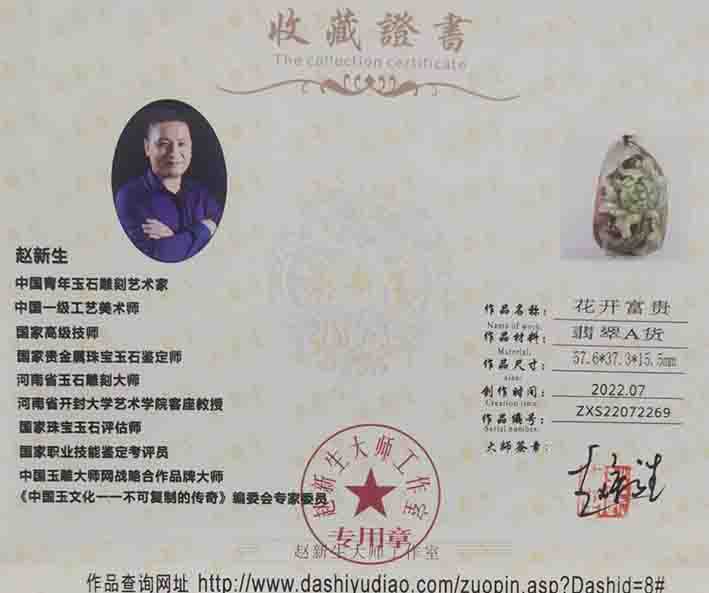 收藏證書
The collection certificate
赵新生
中国青年玉石雕刻艺术家
中国一级工艺美术师
国家高级技师
国家贵金属珠宝玉石鉴定师
河南省玉石雕刻大师
河南省开封大学艺术学院客座教授
国家珠宝玉石评估师
国家职业技能鉴定考评员
中国玉雕大师网战略合作品牌大师
《中国玉文化一一不可复制的传奇》编委会专家委员
作品名称: 花开富贵
Name of work:
作品材料: 翡翠A货
Material:
作品尺寸: 57.6*37.3*15.5mm
size:
创作时间: 2022.07
Creation time:
作品编号: ZXS22072269
Serial number:
大师签章:
赵新生大师工作室
专用章
赵新生大师工作室
作品查询网址 http://www.dashiyudiao.com/zuopin.asp?Dashid=8#